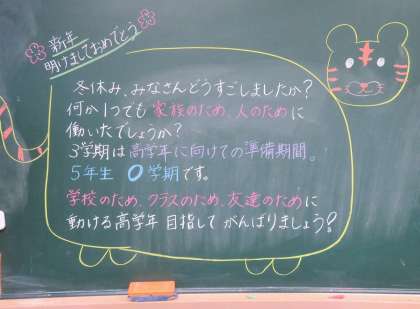 新年
明けましておめでとう
冬休み、みなさんどうすごしましたか？
何か1つでも 家族のため、人のために
働いたでしょうか？
3学期は高学年に向けての準備期間。
5年生 0学期です。
学校のため、クラスのため、友達のために
動ける高学年 目指して がんばりましょう！